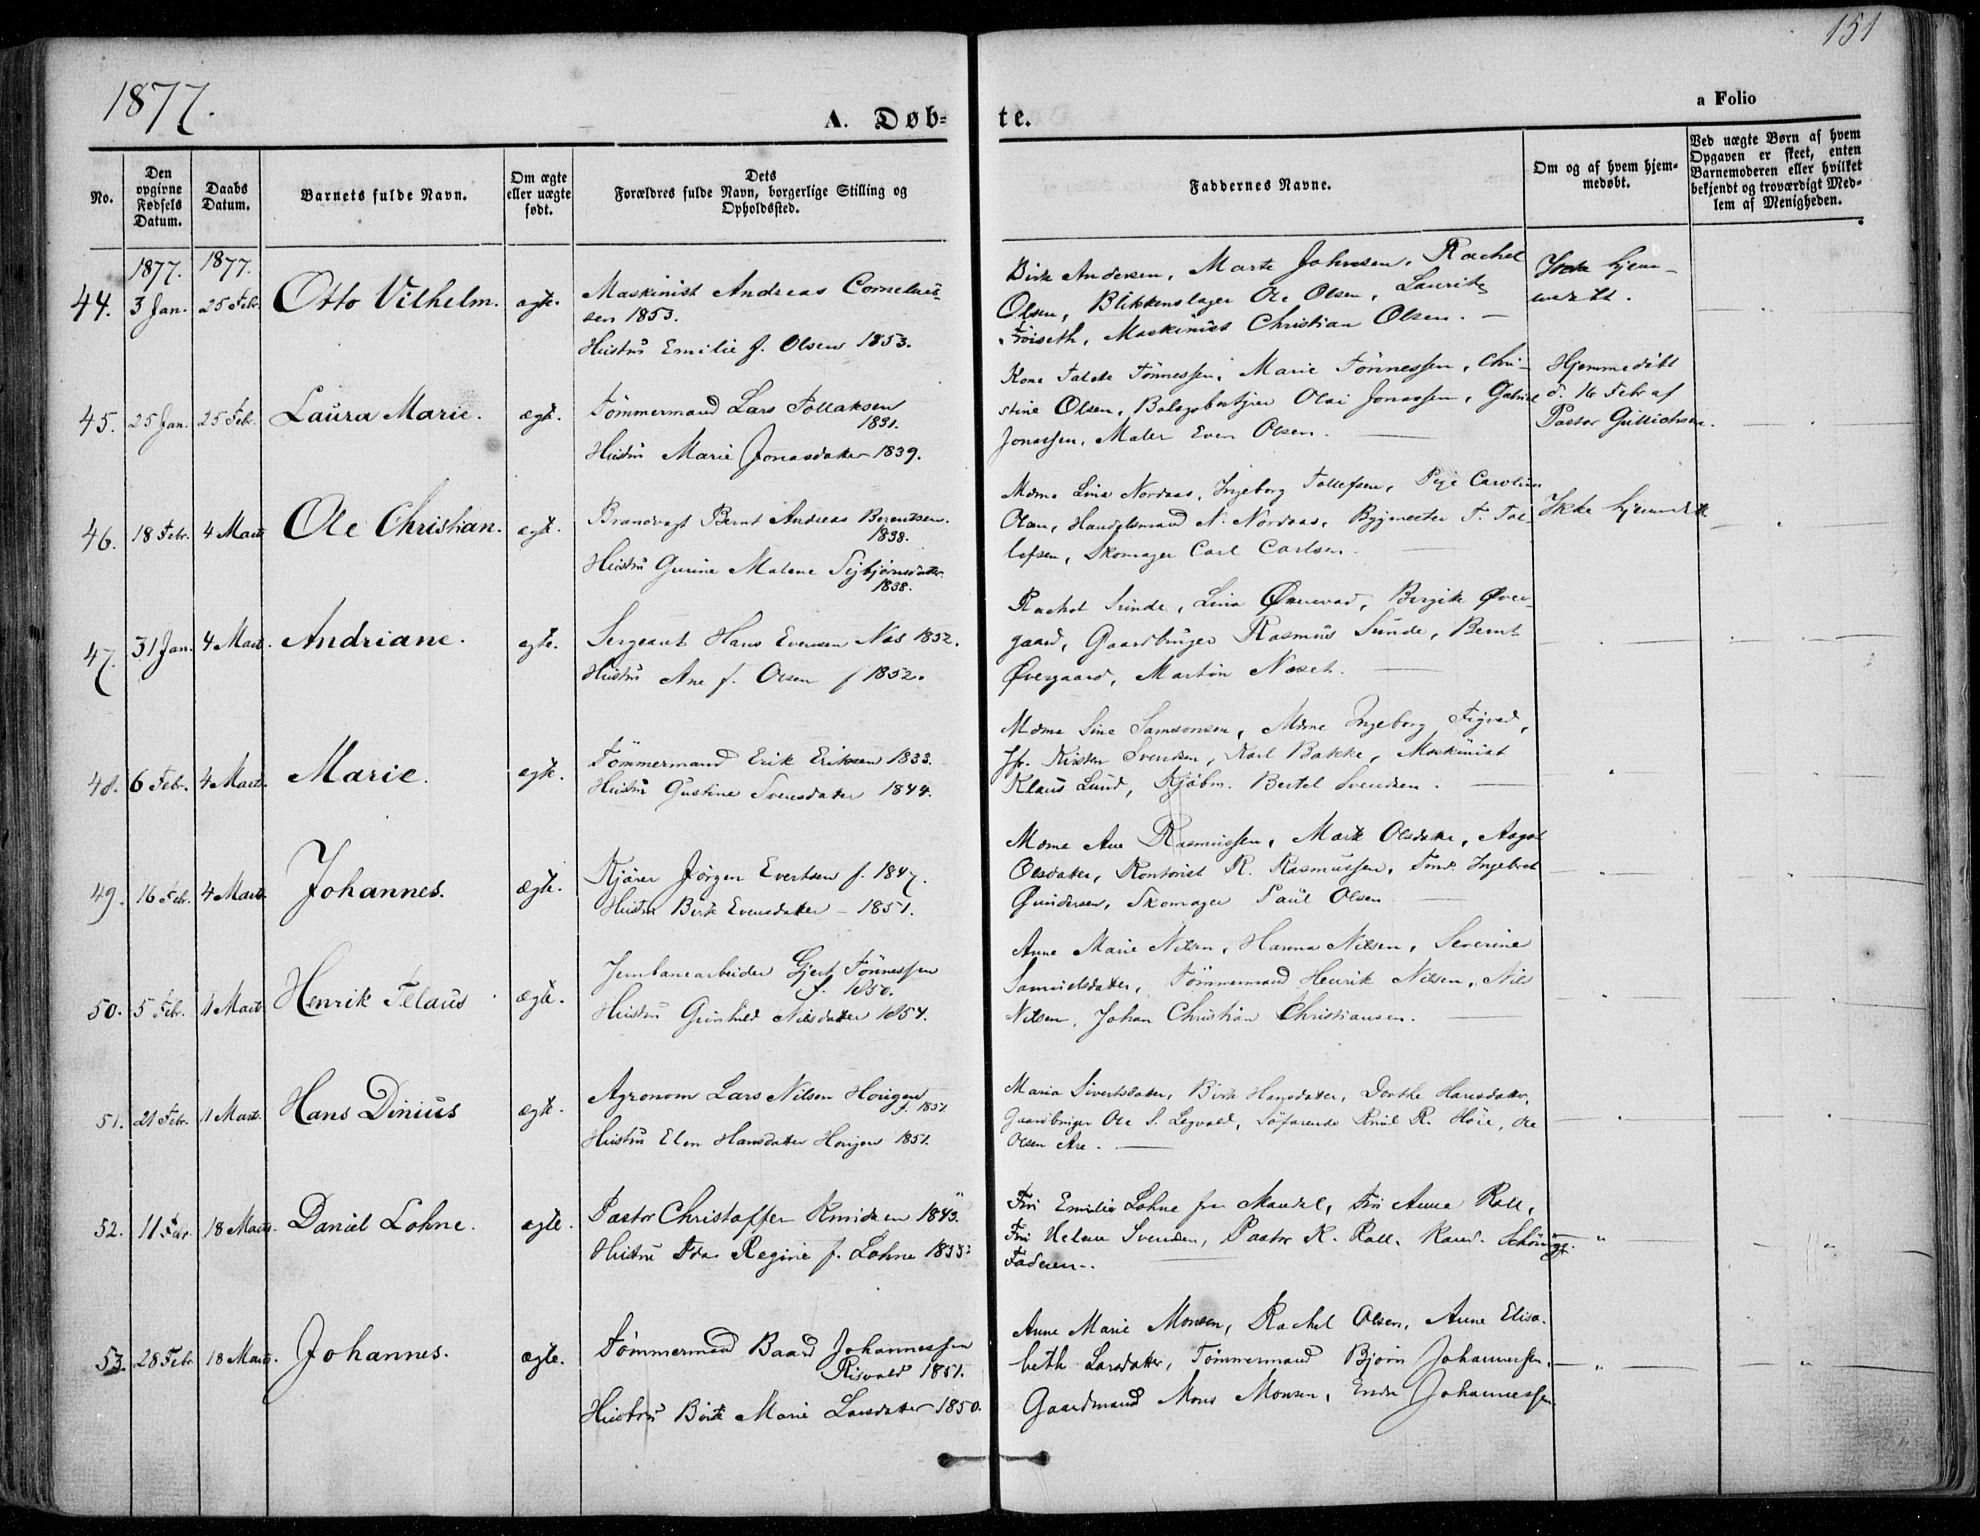 151
1877.
A. Døb-
te.
a Folio
No.
Den
opgivne
Fødsels
Datum.
Daabs
Datum.
Barnets fulde Navn.
Om ægte
eller uægte
født.
Dets
Forældres fulde Navn, borgerlige Stilling og
Opholdssted.
Faddernes Navne.
Om og af hvem hjem-
medøbt.
Ved uægte Børn af hvem
Opgaven er skeet, enten
Barnemoderen eller hvilket
bekjendt og troværdigt Med-
lem af Menigheden.
1877. 1877.
44. 3 Jan. 25 Febr. Otto Vilhelm. ægte.
Maskinist Andreas Cornelius-
sen 1853.
Hustru Emilie f. Olsen 1853.
Birte Andersen, Marte Johnsen, Rachel
Olsen, Blikkenslager Ole Olsen, Laurits
Maskinist Christian Olsen. —
Ikke hjem-
45. 25 Jan. 25 Febr. Laura Marie. ægte.
Tömmermand Lars Tollaksen
1831.
Hustru Marie Jonasdatter 1839.
Kone Tönnessen, Marie Tönnessen, Chri-
stine Olsen, Olai Jonassen, Gabriel
Jonassen, Maler Even Olsen. —
Hjemmedöbt
d. 16 Febr af
Pastor
46. 18 Febr. 4 Marts Ole Christian. ægte.
Brandvagt Bernt Andreas Berentsen.
1838.
Hustru Gurine Malene Sigbjörnsdatter
1838.
Mdme Lina Nordaas, Ingeborg Tollefsen, Pige Caroline
Olsen, Handelsmand N. Nordaas, Bygmester T. Tol-
lefsen, Skomager Carl Carlsen. —
Ikke hjemmedöbt
47. 31 Jan. 4 Marts. Andriane. ægte.
Sergeant Hans Evensen Næs 1852.
Hustru Ane f. Olsen f 1852.
Rachel Sunde, Lina Birgitte Øver-
gaard, Gaardbruger Rasmus Sunde, Bernt
Øvergaard, Martin Næset. —
48. 6 Febr. 4 Marts. Marie. ægte.
Tömmermand Erik Eriksen 1833.
Hustru Gustine Svensdatter 1844.
Mdme Sine Samsonsen, Mdme Ingeborg
Kirsten Svendsen, Karl Bakke, Maskinist
Klaus Lund, Kjöbm. Bertel Svendsen. —
49. 16 Febr. 4 Marts. Johannes. ægte.
Kjörer Jörgen Evertsen f. 1847.
Hustru Birte Evensdatter – 1851.
Mdme Ane Rasmussen, Marte Olsdatter,
Olsdatter, Kontorist R. Rasmussen, Ingebret
Gundersen, Skomager Paul Olsen —
50. 5 Febr. 11 Marts Henrik Telaus. ægte.
Jernbanearbeider Gjert Tönnessen
f. 1850.
Hustru Gunhild Nilsdatter 1854.
Anne Marie Nilsen, Hanna Nilsen, Severine
Samuelsdatter, Tömmermand Henrik Nilsen, Nils
Nilsen, Johan Christian Christiansen. —
51. 21 Febr. 11 Marts. Hans Dinius ægte.
Agronom Lars Nilsen Horigen
f. 1851.
Hustru Elen Hansdatter Horigen 1851.
Maria Sivertsdatter, Birte Hansdatter, Dorthe Hansdatter,
Gaardbruger Ole S. Söfarende Knud R. Höie, Ole
Olsen Are. —
52. 11 18 Marts Daniel Lohne. ægte.
Pastor Christoffer Knudsen 1843.
Hustru Ida Regine f. Lohne
Fru Emilie Lohne fra Mandal, Fru Anna Rall,
Fru Helene Svendsen, Pastor K. Rall, Kand.
Faderen. —
53. 28 Febr 18 Marts. Johannes. ægte.
Tömmermand Baard Johannessen
Risvold 1851.
Hustru Birte Marie Larsdatter 1850.
Anne Marie Monsen, Rachel Olsen, Anne Elisa-
beth Larsdatter, Tömmermand Björn Johannessen,
Gaardmand Mons Monsen, Johannessen